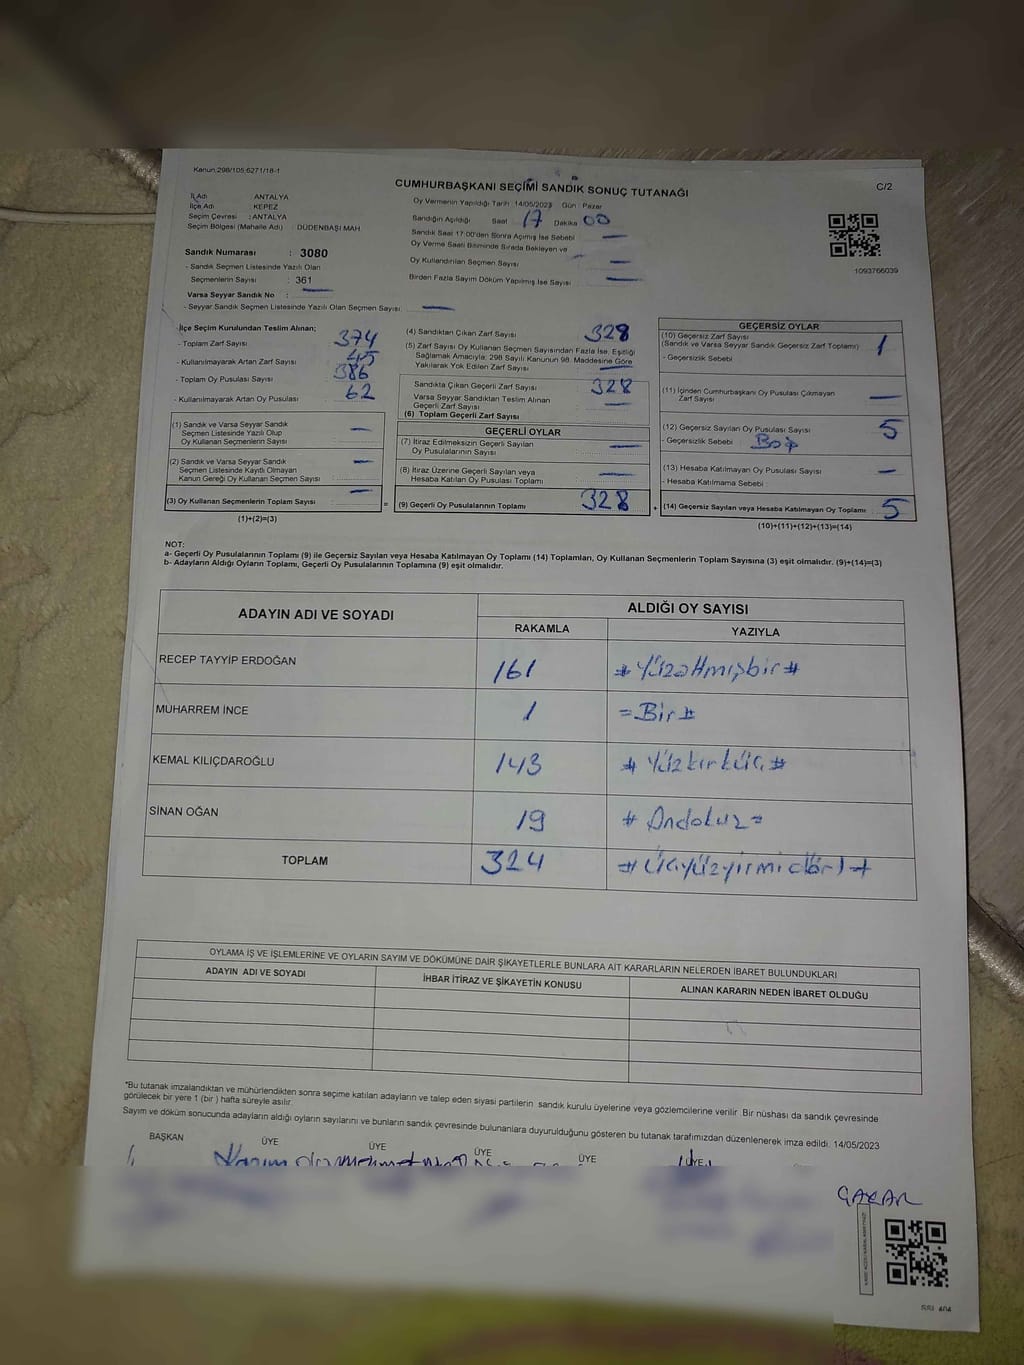 Kanun:298/105;6271/18-1
CUMHURBAŞKANI SEÇİMİ SANDIK SONUÇ TUTANAĞI
C/2
İl Adı ANTALYA
İlçe Adı KEPEZ
Seçim Çevresi : ANTALYA
Seçim Bölgesi (Mahalle Adı) : DÜDENBAŞI MAH
Oy Vermenin Yapıldığı Tarih :14/05/2023 Gün Pazar
Sandığın Açıldığı Saat 17 Dakika 00
Sandık Saat 17:00'den Sonra Açılmış İse Sebebi —
Oy Verme Saati Bitiminde Sırada Bekleyen ve
Oy Kullandırılan Seçmen Sayısı —
Birden Fazla Sayım Döküm Yapılmış İse Sayısı —
1093766039
Sandık Numarası : 3080
- Sandık Seçmen Listesinde Yazılı Olan
Seçmenlerin Sayısı : 361
Varsa Seyyar Sandık No : —
- Seyyar Sandık Seçmen Listesinde Yazılı Olan Seçmen Sayısı: —
İlçe Seçim Kurulundan Teslim Alınan;
- Toplam Zarf Sayısı 374
- Kullanılmayarak Artan Zarf Sayısı 45
- Toplam Oy Pusulası Sayısı 386
- Kullanılmayarak Artan Oy Pusulası 62
(1) Sandık ve Varsa Seyyar Sandık
Seçmen Listesinde Yazılı Olup
Oy Kullanan Seçmenlerin Sayısı —
(2) Sandık ve Varsa Seyyar Sandık
Seçmen Listesinde Kaydı Olmayan
Kanun Gereği Oy Kullanan Seçmen Sayısı —
(3) Oy Kullanan Seçmenlerin Toplam Sayısı — =
(1)+(2)=(3)
(4) Sandıktan Çıkan Zarf Sayısı 328
(5) Zarf Sayısı Oy Kullanan Seçmen Sayısından Fazla İse, Eşitliği
Sağlamak Amacıyla; 298 Sayılı Kanunun 98. Maddesine Göre
Yakılarak Yok Edilen Zarf Sayısı —
Sandıkta Çıkan Geçerli Zarf Sayısı 328
Varsa Seyyar Sandıktan Teslim Alınan
Geçerli Zarf Sayısı —
(6) Toplam Geçerli Zarf Sayısı
GEÇERLİ OYLAR
(7) İtiraz Edilmeksizin Geçerli Sayılan
Oy Pusulalarının Sayısı —
(8) İtiraz Üzerine Geçerli Sayılan veya
Hesaba Katılan Oy Pusulası Toplamı —
(9) Geçerli Oy Pusulalarının Toplamı 328 +
GEÇERSİZ OYLAR
(10) Geçersiz Zarf Sayısı
(Sandık ve Varsa Seyyar Sandık Geçersiz Zarf Toplamı) 1
- Geçersizlik Sebebi
(11) İçinden Cumhurbaşkanı Oy Pusulası Çıkmayan
Zarf Sayısı —
(12) Geçersiz Sayılan Oy Pusulası Sayısı 5
- Geçersizlik Sebebi Boş
(13) Hesaba Katılmayan Oy Pusulası Sayısı —
- Hesaba Katılmama Sebebi :
(14) Geçersiz Sayılan veya Hesaba Katılmayan Oy Toplamı 5
(10)+(11)+(12)+(13)=(14)
NOT:
a- Geçerli Oy Pusulalarının Toplamı (9) ile Geçersiz Sayılan veya Hesaba Katılmayan Oy Toplamı (14) Toplamları, Oy Kullanan Seçmenlerin Toplam Sayısına (3) eşit olmalıdır. (9)+(14)=(3)
b- Adayların Aldığı Oyların Toplamı, Geçerli Oy Pusulalarının Toplamına (9) eşit olmalıdır.
ADAYIN ADI VE SOYADI
ALDIĞI OY SAYISI
RAKAMLA YAZIYLA
RECEP TAYYİP ERDOĞAN 161 # Yüzaltmışbir #
MUHARREM İNCE 1 = Bir #
KEMAL KILIÇDAROĞLU 143 # Yüzkırküç #
SİNAN OĞAN 19 # Ondokuz =
TOPLAM 324 # Üçyüzyirmidört #
OYLAMA İŞ VE İŞLEMLERİNE VE OYLARIN SAYIM VE DÖKÜMÜNE DAİR ŞİKAYETLERLE BUNLARA AİT KARARLARIN NELERDEN İBARET BULUNDUKLARI
ADAYIN ADI VE SOYADI İHBAR İTİRAZ VE ŞİKAYETİN KONUSU ALINAN KARARIN NEDEN İBARET OLDUĞU
*Bu tutanak imzalandıktan ve mühürlendikten sonra seçime katılan adayların ve talep eden siyasi partilerin sandık kurulu üyelerine veya gözlemcilerine verilir. Bir nüshası da sandık çevresinde
görülecek bir yere 1 (bir) hafta süreyle asılır.
Sayım ve döküm sonucunda adayların aldığı oyların sayılarını ve bunların sandık çevresinde bulunanlara duyurulduğunu gösteren bu tutanak tarafımızdan düzenlenerek imza edildi. 14/05/2023
BAŞKAN ÜYE ÜYE ÜYE ÜYE ÜYE